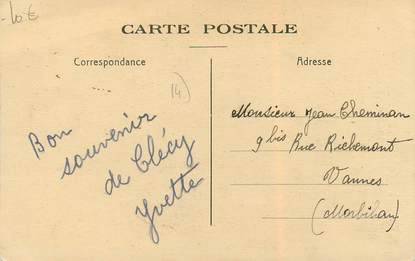 -10€
CARTE POSTALE
Correspondance
Adresse
14)
Bon
souvenir
de Clécy
Yvette
Monsieur Jean Cheminan
9 bis Rue Richemont
Vannes
(Morbihan)